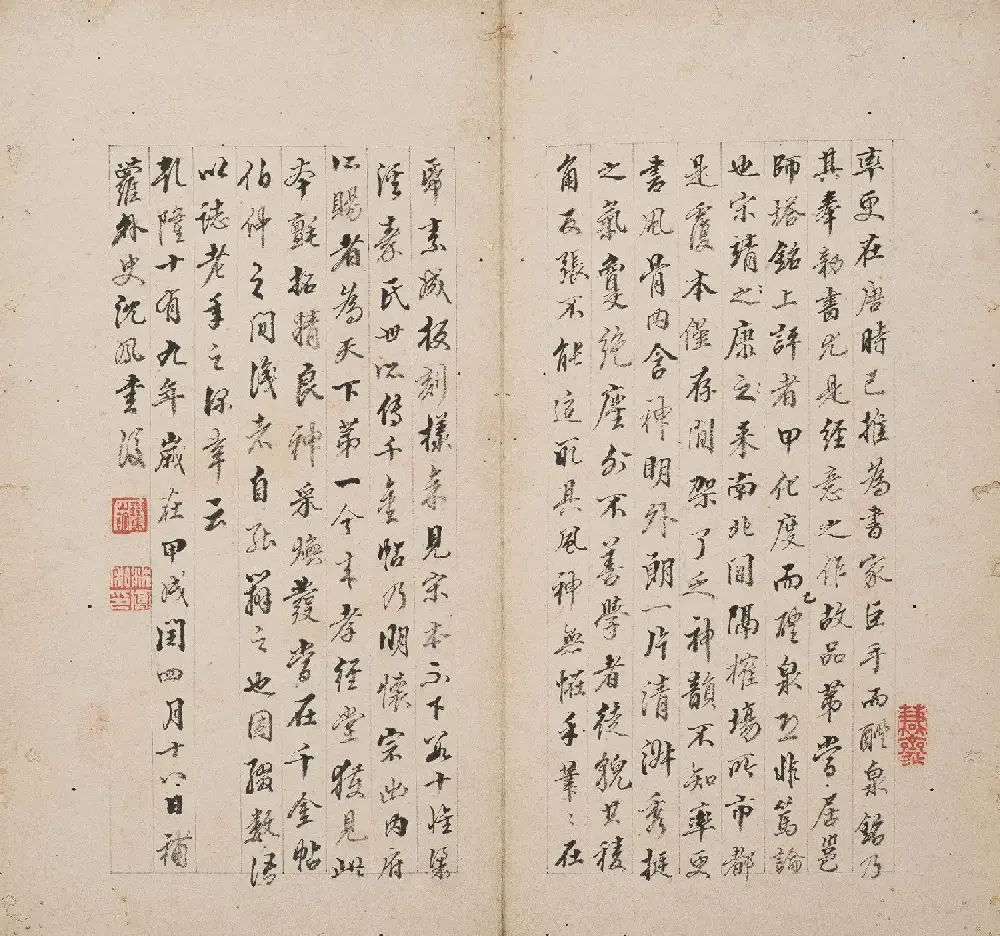 率更在唐時已推為書家巨手而醴泉銘乃
其奉勅書尤是經意之作故品第當居邕
師塔銘上評者甲化度而乙醴泉恐非篤論
也宋靖之康之來南北間隔搉場所市都
是覆本僅存間架了乏神韻不知率更
書風骨內含神明外朗一片清渊秀挺
之氣敻絕塵外不善學者徒貌其稜
角反張不能這取其風神無怪手筆〻在
棗素成板刻樣余見宋本不下若十惟梁
溪秦氏世所傳千金帖乃明懷宗出內府
所賜者為天下第一今于孝經堂獲見此
本氈拓精良神采煥發當在千金帖
伯仲之間識者自能辨之也因綴數語
以誌老年之深幸云
乾隆十有九年歲在甲戌閏四月十八日補
蘿外史沈鳳書後